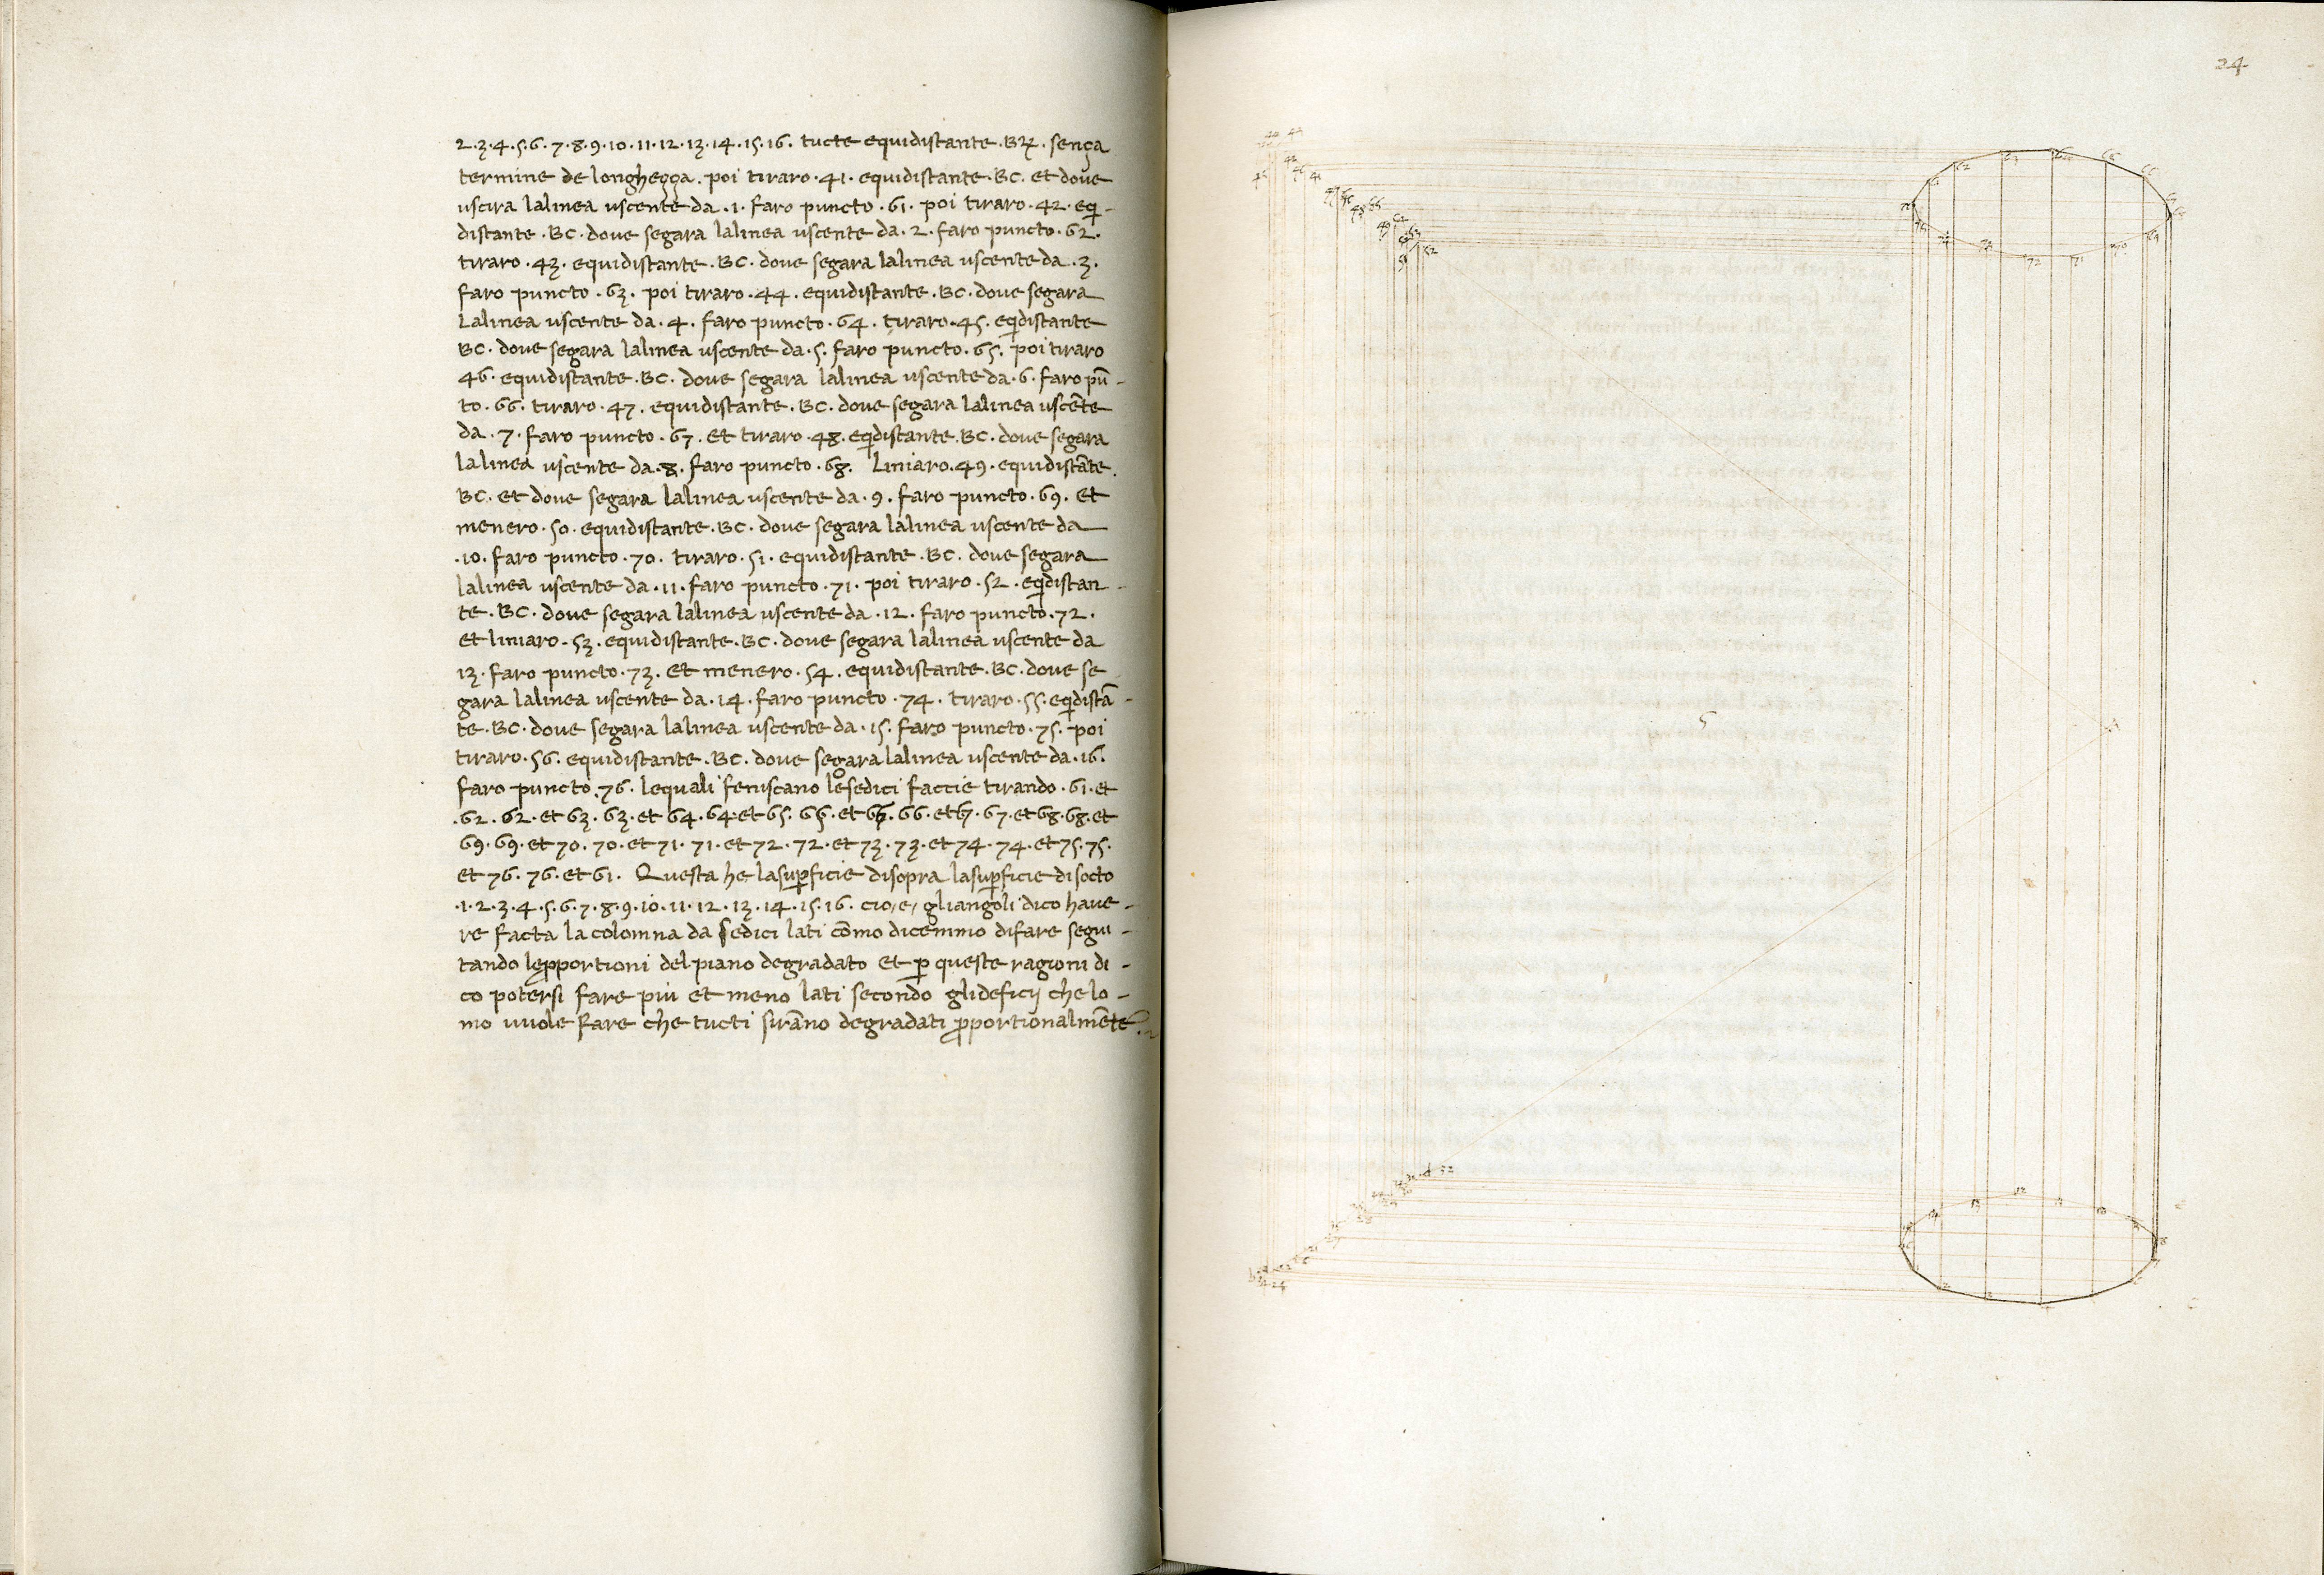 2·3·4·5·6·7·8·9·10·11·12·13·14·15·16. tucte equidistante · sença
termine de longheçça. poi tiraro ·41· equidistante ·BC· et dove
uscira lalinea uscente da ·1· faro puncto ·61· poi tiraro ·42· eq̃i-
distante ·BC· dove segara lalinea uscente da ·2· faro puncto ·62·
tiraro ·43· equidistante ·BC· dove segara lalinea uscente da ·3·
faro puncto ·63· poi tiraro ·44· equidistante ·BC· dove segara
Lalinea uscente da ·4· faro puncto ·64· tiraro ·45· eq̃idistante
BC· dove segara lalinea uscente da ·5· faro puncto ·65· poi tiraro
46· equidistante ·BC· dove segara lalinea uscente da ·6· faro pũ-
to ·66· tiraro ·47· equidistante ·BC· dove segara lalinea uscẽte
da ·7· faro puncto ·67· et tiraro ·48· eq̃idistante ·BC· dove segara
lalinea uscente da ·8· faro puncto ·68· Liniaro ·49· equidistãte
BC· et dove segara lalinea uscente da ·9· faro puncto ·69· et
menero ·50· equidistante ·BC· dove segara lalinea uscente da
·10· faro puncto ·70· tiraro ·51· equidistante ·BC· dove segara
lalinea uscente da ·11· faro puncto ·71· poi tiraro ·52· eq̃idistan-
te ·BC· dove segara lalinea uscente da ·12· faro puncto ·72·
et liniaro ·53· equidistante ·BC· dove segara lalinea uscente da
13· faro puncto ·73· et menero ·54· equidistante ·BC· dove se
gara lalinea uscente da ·14· faro puncto ·74· tiraro ·55· eq̃idistã-
te ·BC· dove segara lalinea uscente da ·15· faro puncto ·75· poi
tiraro ·56· equidistante ·BC· dove segara lalinea uscente da ·16·
faro puncto ·76· lequali feniscano le sedici faccie tirando ·61· et
·62· 62· et 63· 63· et 64· 64· et 65· 65· et 66· 66· et 67· 67· et 68· 68· et
69· 69· et 70· 70· et 71· 71· et 72· 72· et 73· 73· et 74· 74· et 75· 75·
et 76· 76· et 61· Questa he lasup̃ficie disopra lasup̃ficie disocto
·1·2·3·4·5·6·7·8·9·10·11·12·13·14·15·16· cio/e/ gliangoli dico have-
re facta la colomna da sedici lati cõmo dicemmo difare segui-
tando lep̃portioni del piano degradato et p̃ queste ragioni di-
co potersi fare piu et meno lati secondo glideficij che lo-
mo vuole fare che tucti sirãno degradati p̃portionalmẽte.
24
5
A
61
62
63
64
65
66
70
71
72
73
74
52
d
12
13
14
10